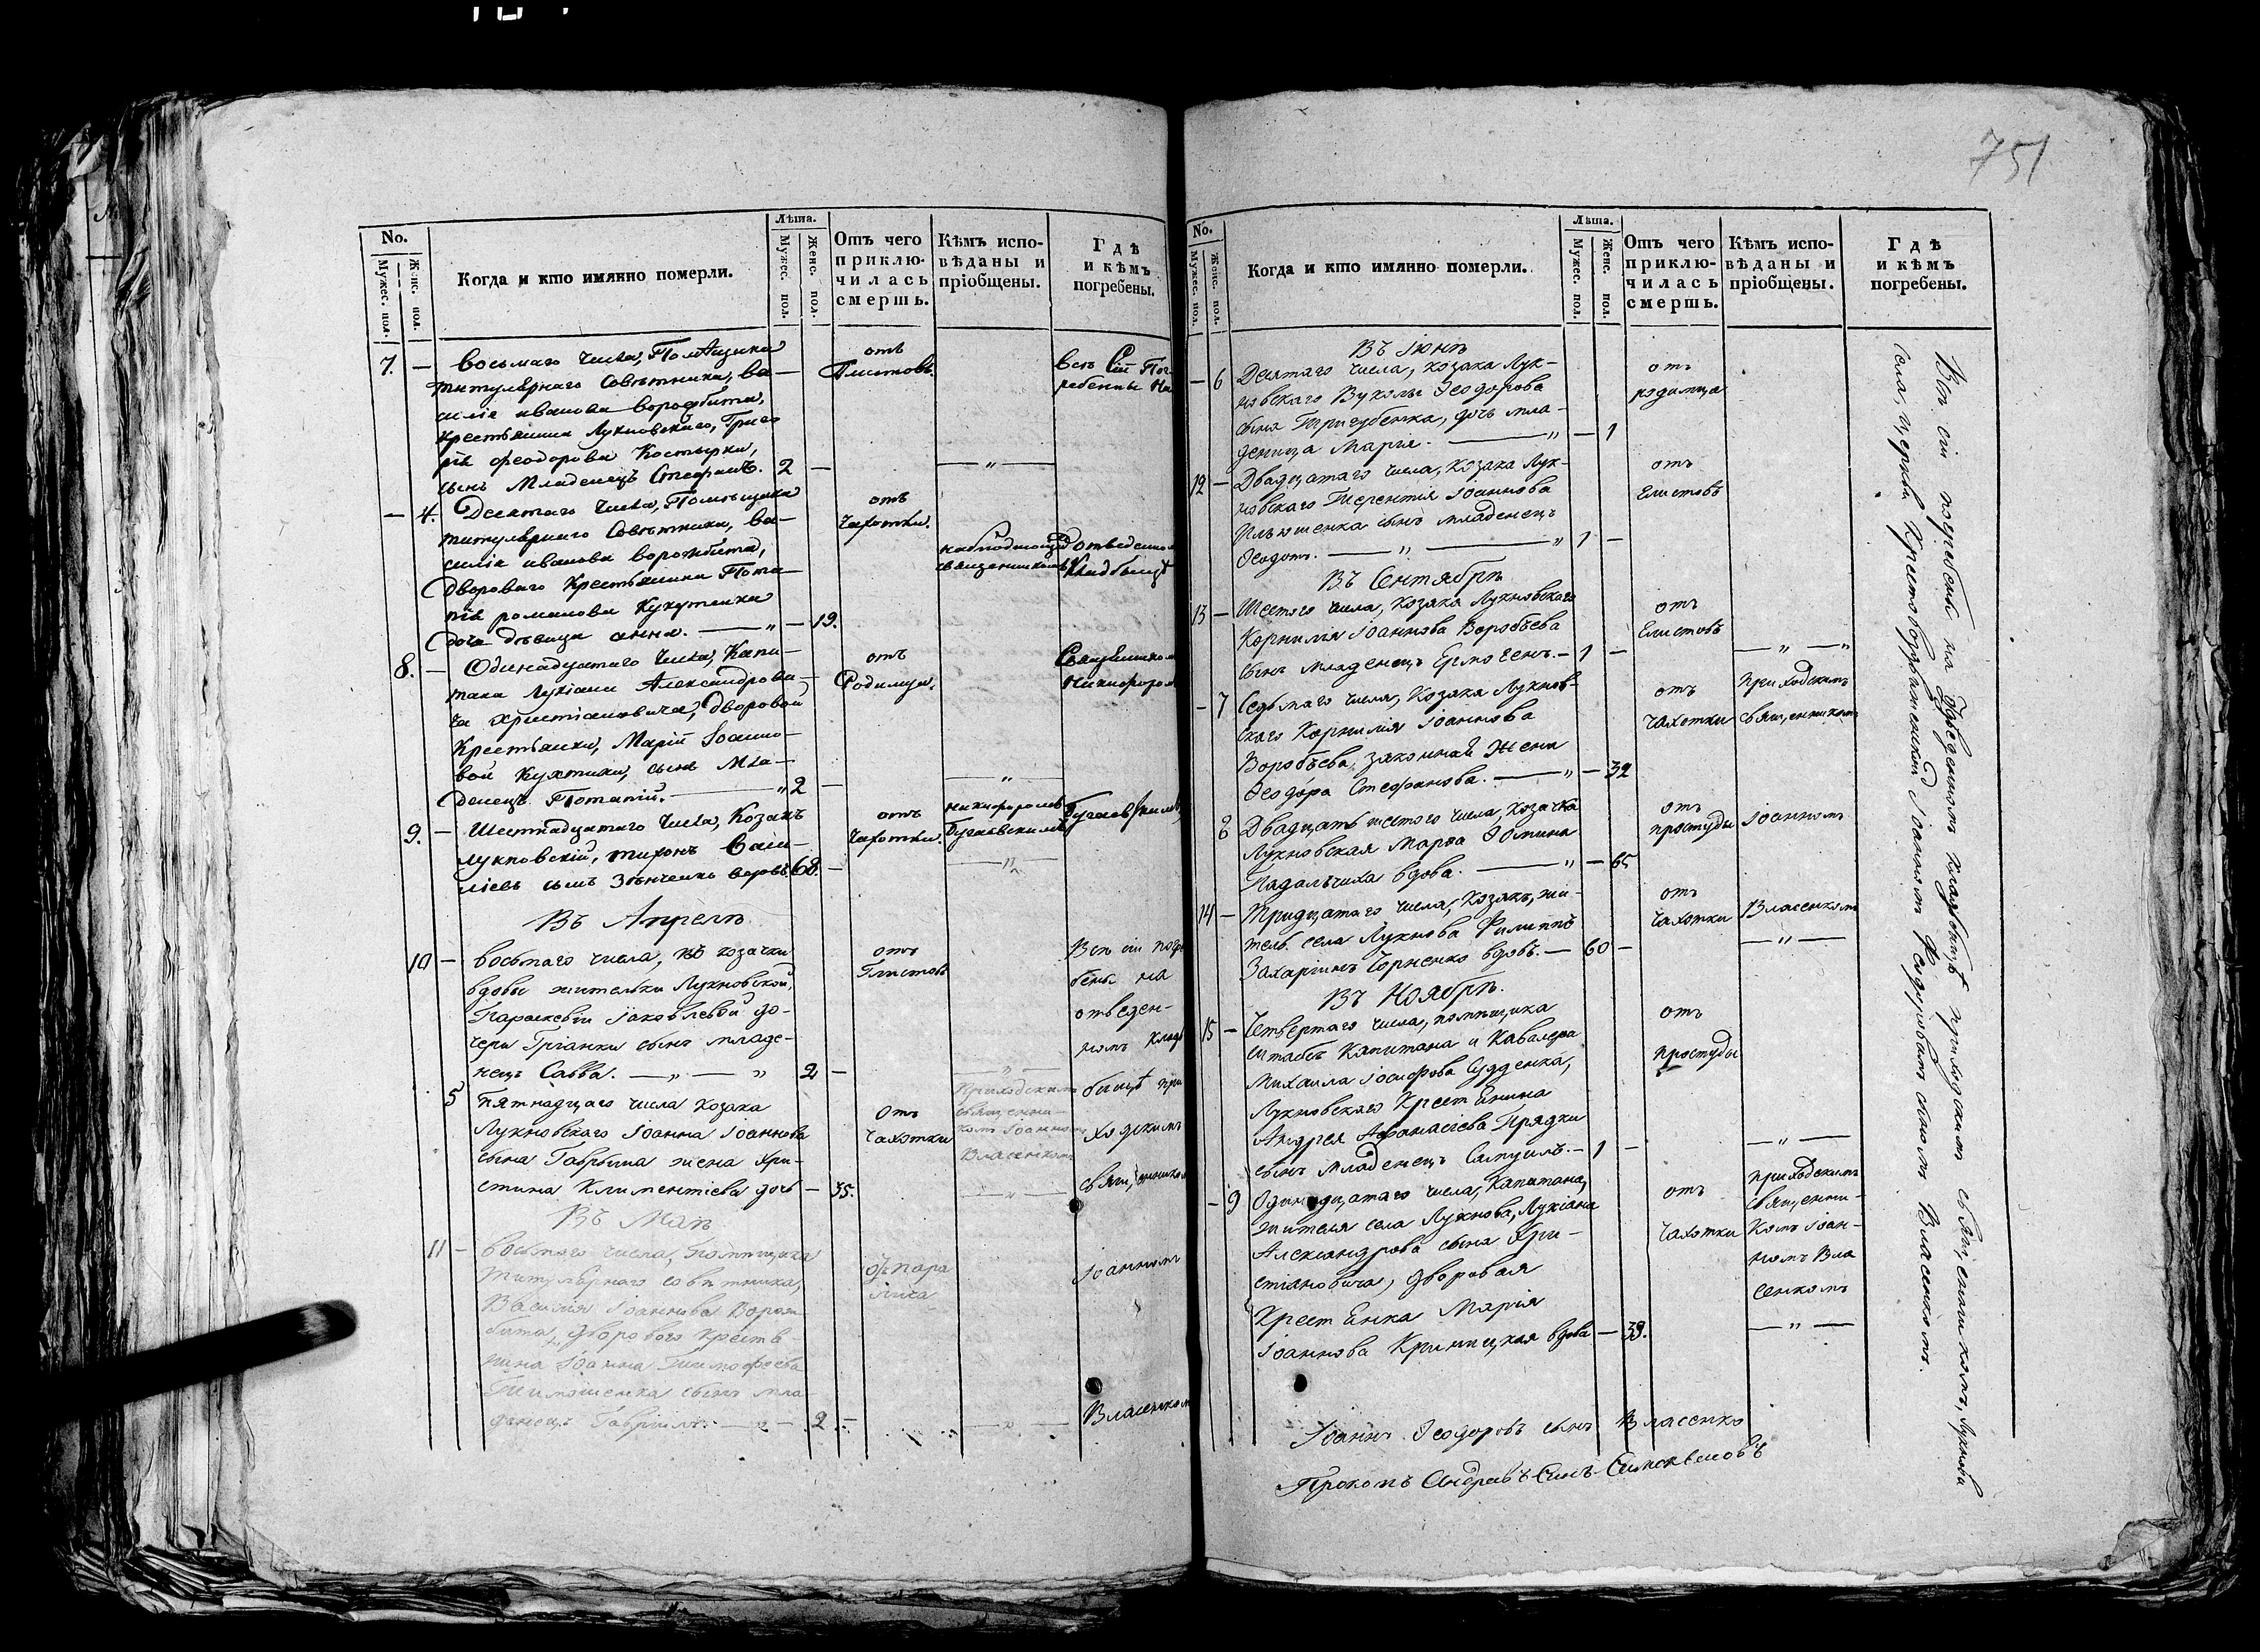 751
No.
Мужес. пол.
Женс. пол.
Когда и кто имянно померли.
Лѣта.
Мужес. пол.
Женс. пол.
Отъ чего приклю-чилась смерть.
Кѣмъ испо-вѣданы и пріобщены.
Гдѣ и кѣмъ погребены.
7. — восьмаго числа, Помѣщика
титулярнаго Совѣтника, ва-
силіе иванова ворожбита,
крестьянина Лукновскаго, Григо
рія феодорова Костырки,
сынъ Младенецъ Стефанъ. 2 —
отъ
Глистовъ.
— " —
всѣ Сіи Пог
ребенны На
— 4. Десятаго числа, Помѣщика
титулярнаго Совѣтника, ва-
силіе иванова ворожбита,
Двороваго Крестьянина Пота-
пія романова
дочь дѣвица анна. — " — 19.
отъ
чахотки.
священникомъ
отведенном
Кладбищѣ
8. — Одинадцатаго числа, Капи-
тана Лукіана Александрова-
ча христіановича, Дворовой
Крестьянки, Маріи Іоанно-
вой сынъ Мла-
денецъ Потапій. — " 2 —
отъ
Родимца.
— " —
Священником
Никифором
9. — Шестнадцатаго числа, Козакъ
лукновскій, тихонъ Васи-
ліевъ сынъ Зѣнченко вдовъ. 68. —
отъ
чахотки.
никифоромъ
Бугаевскимъ
— " —
Бугаевскимъ
Въ Апрелѣ
10 — восьмаго числа, козачки
вдовы жительки Лукновской,
Параскевіи Іаковлевой до-
чери Гріанки сынъ младе-
нецъ Савва. — " — " 2 —
отъ
Глистовъ
— " —
Всѣ сіи погр
бены на
отведен-
номъ кладб
бищѣ при
ходскимъ
священником
Іоанномъ
Власенком
5 пятнадцаго числа козака
Лукновскаго Іоанна Іоаннова
сына Гаврыша жена Хри-
стина Климентіева дочь — 35.
отъ
чахотки
Приходскимъ
священни-
комъ Іоанномъ
Власенкомъ
— " —
Въ Маѣ
11 — восьмаго числа, помѣщика
Титулярнаго совѣтника,
Василія Іоаннова Ворож
бита, двороваго крестья
нина Іоанна Тимофеева
Тимошенка сынъ мла-
денецъ Гавріилъ. — " — 2 —
отъ пара
лича
— " —
No.
Мужес. пол.
Женс. пол.
Когда и кто имянно померли.
Лѣта.
Мужес. пол.
Женс. пол.
Отъ чего приклю-чилась смерть.
Кѣмъ испо-вѣданы и пріобщены.
Гдѣ и кѣмъ погребены.
Въ Іюнѣ
— 6 Десятаго числа, козака Лук-
новскаго Вуколы Ѳеодорова
сына Тригубенка, дочь мла-
деница Марія. — " — 1
отъ
родимца
12 — Двадцатаго числа, козака Лук-
новскаго Терентія Іоаннова
Ильюшенка сынъ младенецъ
Ѳеодотъ. — " — " 1 —
отъ
Глистовъ
Въ Сентябрѣ
13 — Шестого числа, козака Лукновскаго
Корнилія Іоаннова Воробьева
сынъ младенецъ Ермогенъ. — 1 —
отъ
Глистовъ
— " — "
— 7 Седьмаго числа, козака Лукнов-
скаго Корнилія Іоаннова
Воробьева, законная жена
Ѳеодора Стефанова. — " — 32
отъ
чахотки
приходскимъ
священникомъ
8 Двадцать шестого числа, козачка
Лукновская Марѳа Ѳомина
Падальчиха вдова. — " — 65
отъ
простуды
Іоанномъ
14 — Тридцатаго числа, козакъ, жи-
тель села Лукнова Филиппъ
Захаріинъ Чорненко вдовъ. — 60 —
отъ
чахотки
Власенкомъ
— " —
Въ Ноябрѣ.
15 — Четвертаго числа, помѣщика
Штабсъ Капитана и Кавалера
Михаила Іосифова Судденка,
Лукновскаго Крестьянина
Андрея Афанасіева Прядки
сынъ младенецъ Самуилъ. — 1 —
отъ
простуды
— " —
— 9 Одинадцатаго числа, Капитана,
жителя села Лукнова, Лукіана
Александрова сына Хри-
стіановича, дворовая
Крестьянка Марія
Іоаннова Криницкая вдова — 39.
отъ
чахотки
приходскимъ
священни-
комъ Іоан-
номъ Вла
сенкомъ
— " —
Всѣ сіи погребены на отведенномъ кладбищѣ приходскимъ священникомъ, Лукнова
села, церкви Крестовоздвиженской Іоанномъ Ѳеодоровымъ сыномъ Власенкомъ.
Іоаннъ Ѳеодоровъ сынъ Власенко
Прокопъ Андреевъ Синъ